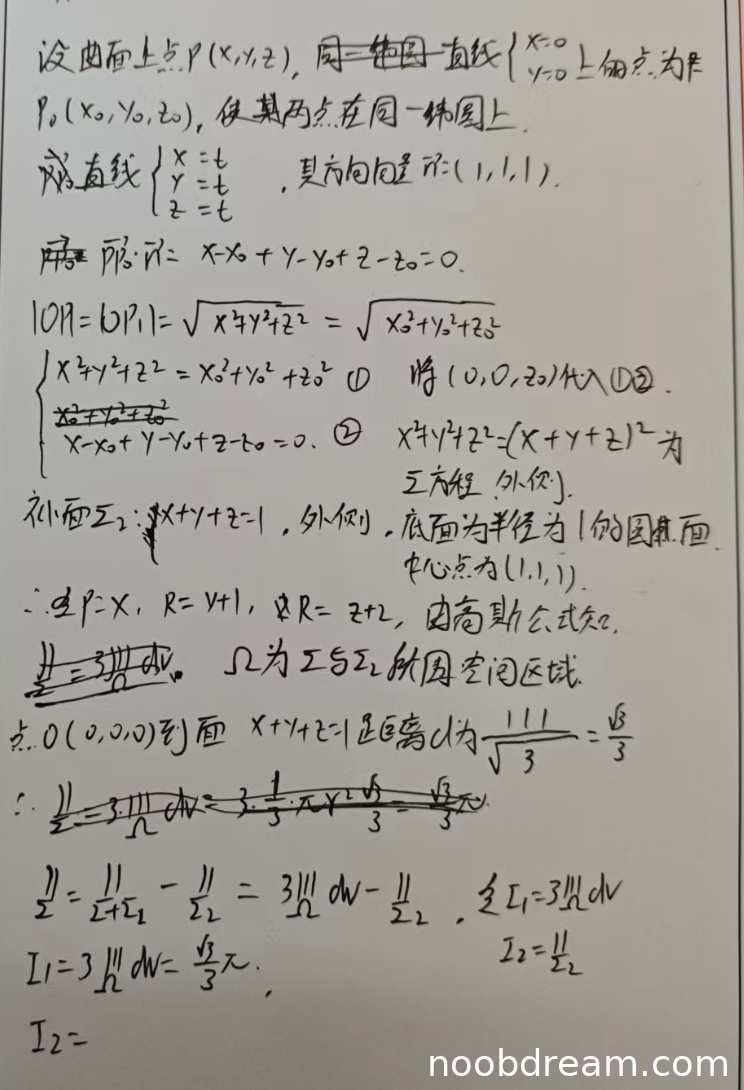 设曲面上点P(x,y,z), 直线{x=0 y=0 上的点为
P₀(x₀,y₀,z₀), 使其两点在同一纬圆上.
直线{x=t y=t z=t ,其方向向量 n⃗=(1,1,1).
PP₀·n⃗= x-x₀+y-y₀+z-z₀=0.
|OP|=|OP₁|=√x²+y²+z² = √x₀²+y₀²+z₀²
{x²+y²+z²=x₀²+y₀²+z₀² ① 将(0,0,z₀)代入①②.
x-x₀+y-y₀+z-z₀=0. ② x²+y²+z²=(x+y+z)²为
Σ方程,外侧.
补面Σ₂: x+y+z=1,外侧,底面为半径为1的圆面.
中心点为(1,1,1).
∴ P=x, R=y+1, R=z+2, 由高斯公式知.
∬Σ = 3∭Ω dv. Ω为Σ与Σ₂所围空间区域.
点O(0,0,0)到面 x+y+z=1距离d为|1|/√3=√3/3
∴ ∬Σ=3·∭Ω dv=3·1/3·πr²√3/3=√3/3π.
∬Σ=∬Σ+Σ₂-∬Σ₂ = 3∭Ω dv-∬Σ₂, 令I₁=3∭Ω dv
I₁=3∭Ω dv=√3/3π. I₂=∬Σ₂
I₂=
noobdream.com